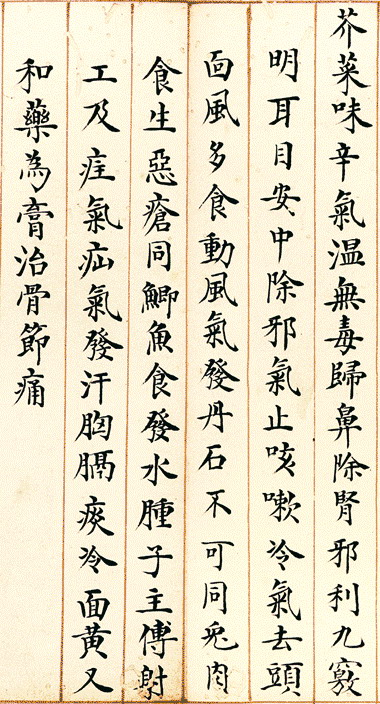 芥菜味辛氣温無毒歸鼻除腎邪利九竅
明耳目安中除邪氣止咳嗽冷氣去頭
面風多食動風氣發丹石不可同兎肉
食生惡瘡同鯽魚食發水腫子主傅射
工及疰氣疝氣發汗胸膈痰冷面黄又
和藥為膏治骨節痛